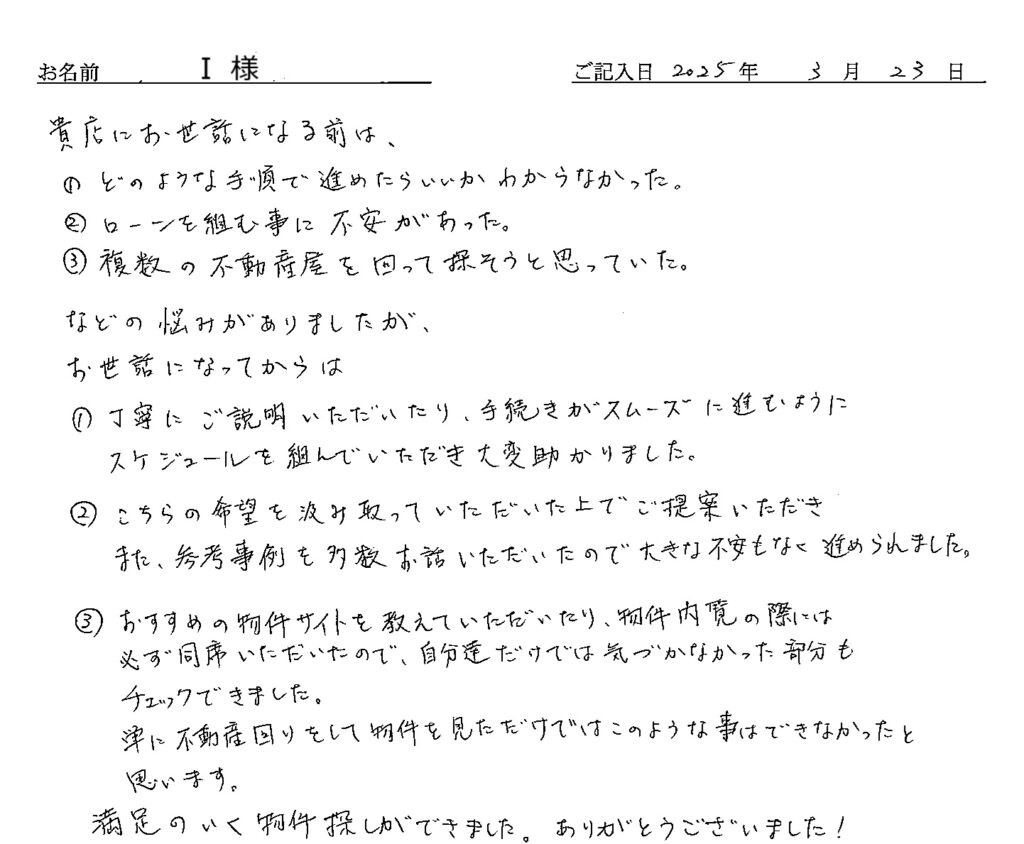 お名前 I 様 ご記入日 2025年 3月 23日
貴店にお世話になる前は、
① どのような手順で進めたらいいかわからなかった。
② ローンを組む事に不安があった。
③ 複数の不動産屋を回って探そうと思っていた。
などの悩みがありましたが、
お世話になってからは
① 丁寧にご説明いただいたり、手続きがスムーズに進むように
スケジュールを組んでいただき大変助かりました。
② こちらの希望を汲み取っていただいた上でご提案いただき
また、参考事例を多数お話いただいたので大きな不安もなく進められました。
③ おすすめの物件サイトを教えていただいたり、物件内覧の際には
必ず同席いただいたので、自分達だけでは気づかなかった部分も
チェックできました。
単に不動産回りをして物件を見ただけではこのような事はできなかったと
思います。
満足のいく物件探しができました。ありがとうございました!